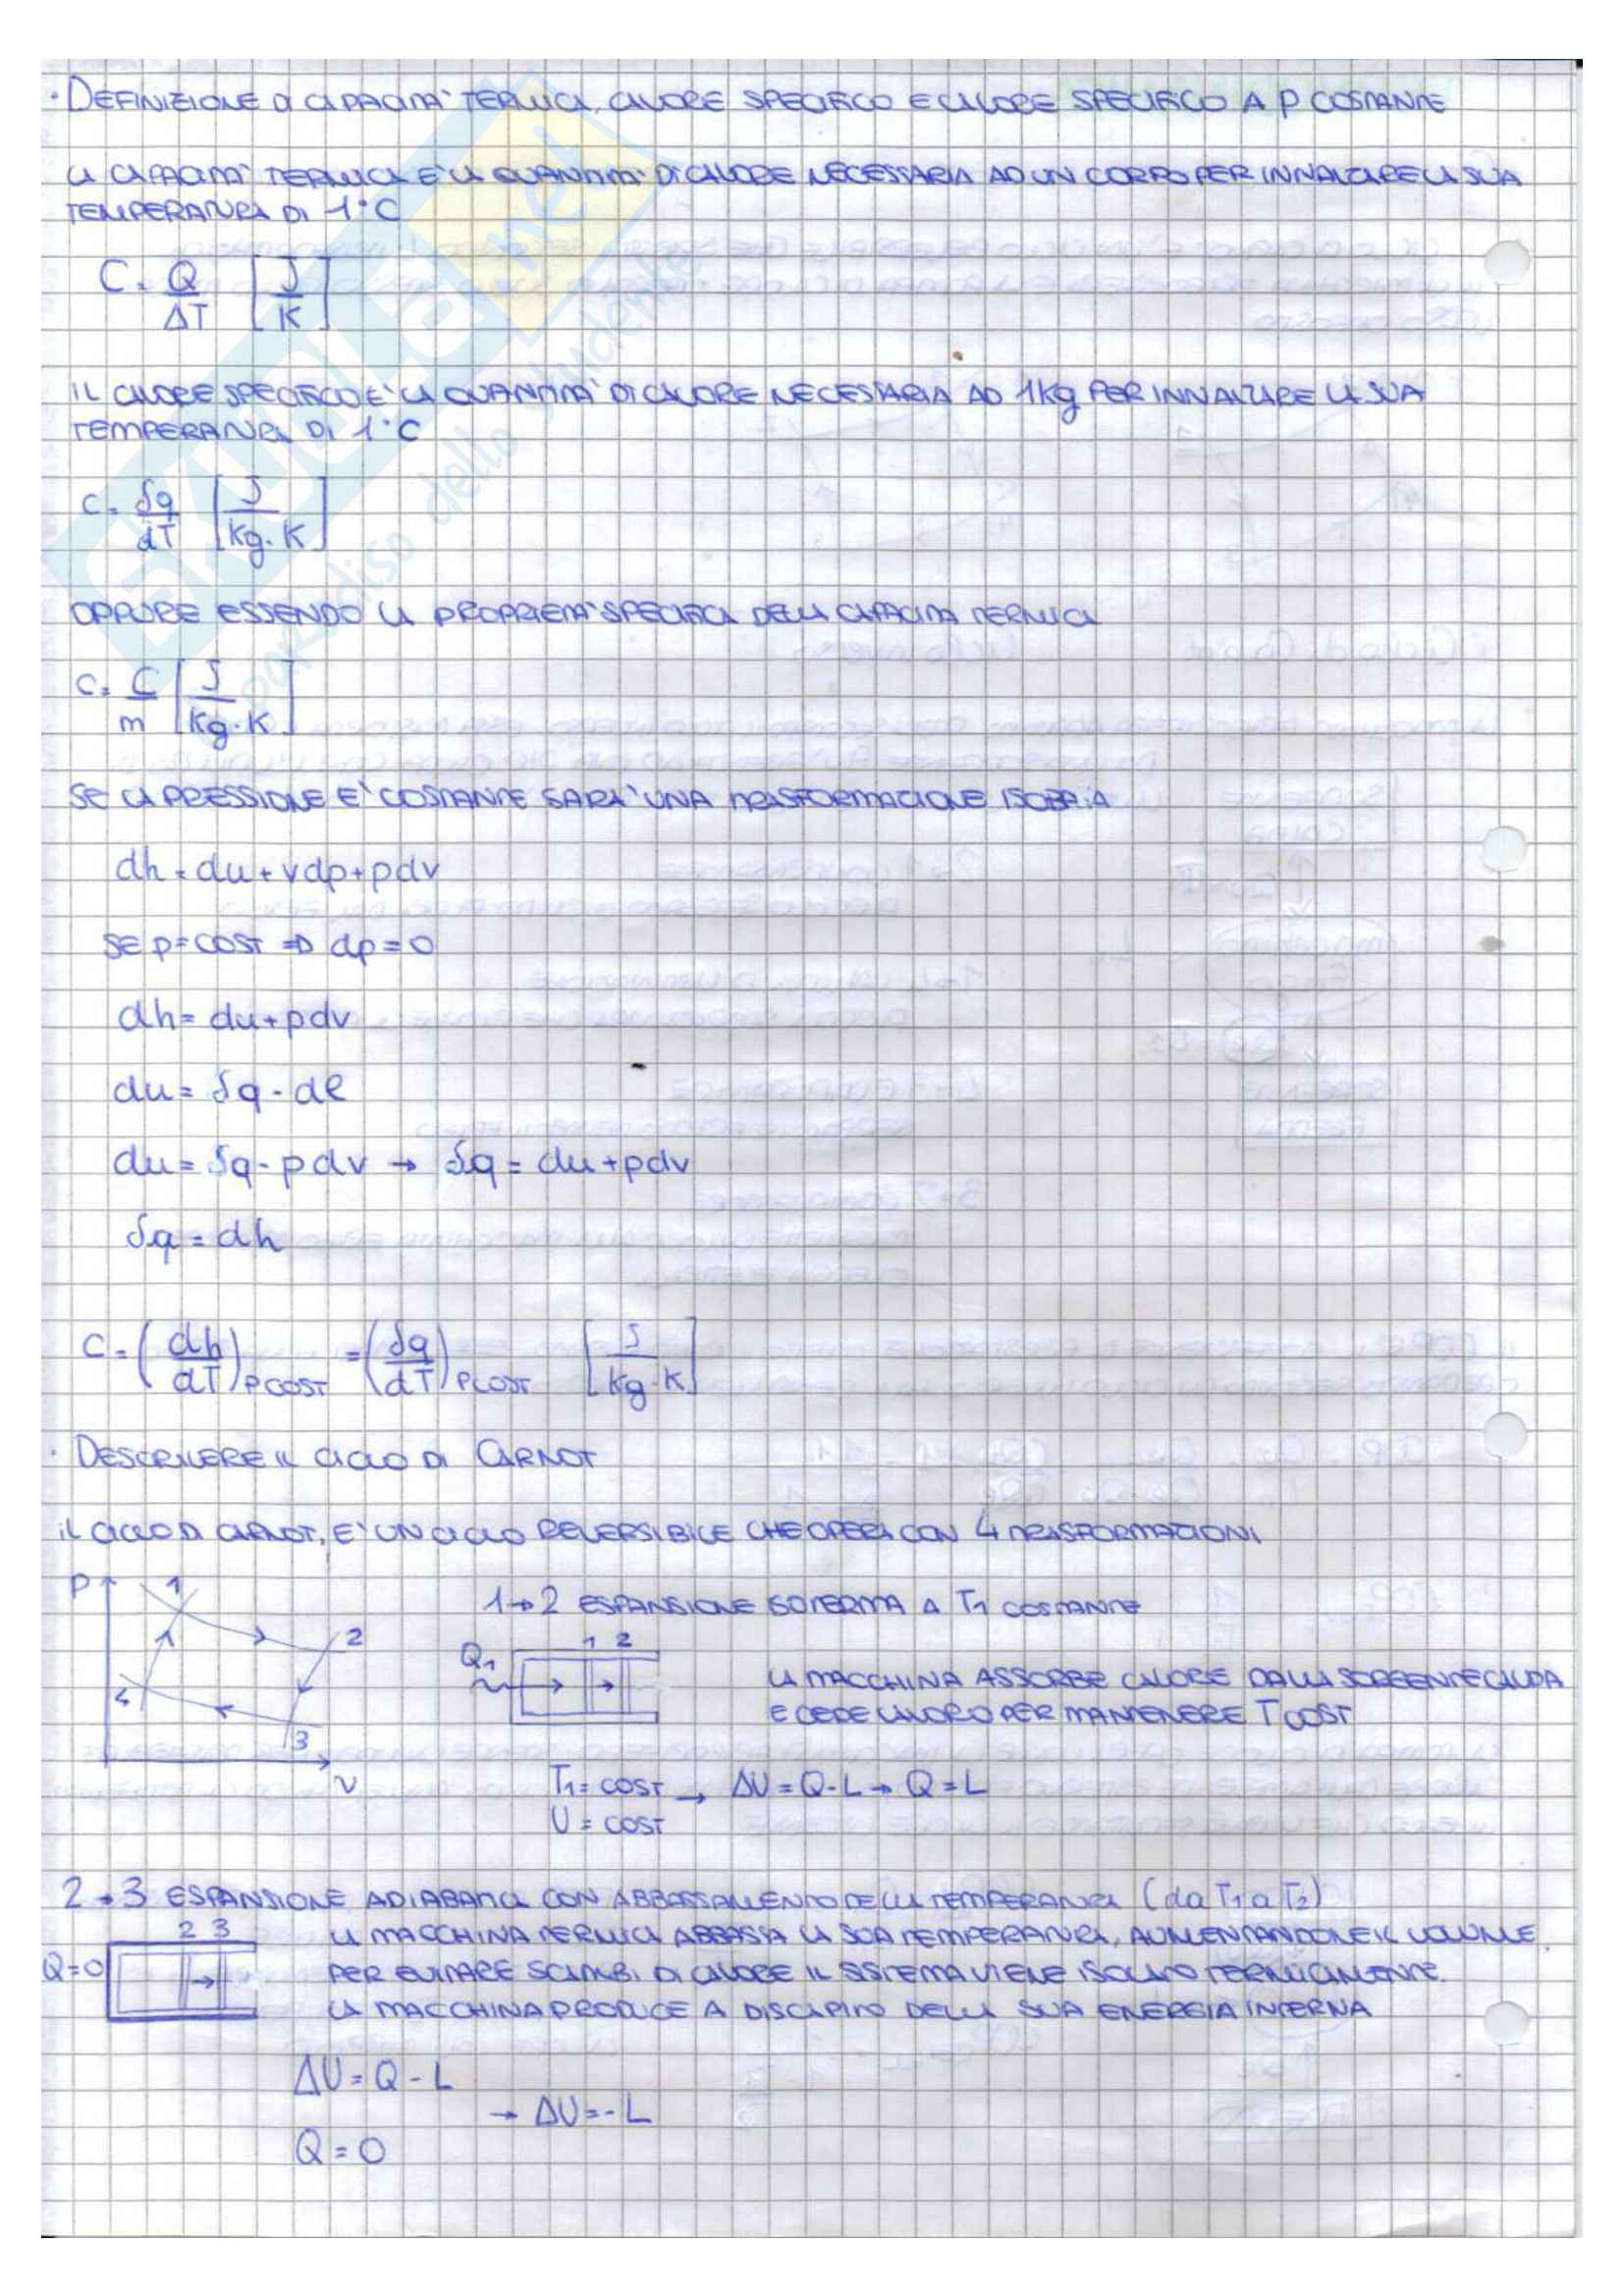 · DEFINIZIONE DI CAPACITA' TERMICA, CALORE SPECIFICO E CALORE SPECIFICO A P COSTANTE
LA CAPACITA' TERMICA E' LA QUANTITA' DI CALORE NECESSARIA AD UN CORPO PER INNALZARE LA SUA
TEMPERATURA DI 1°C
C = Q/ΔT [J/K]
IL CALORE SPECIFICO E' LA QUANTITA' DI CALORE NECESSARIA AD 1kg PER INNALZARE LA SUA
TEMPERATURA DI 1°C
c = δq/dT [J/kg·K]
OPPURE ESSENDO LA PROPRIETA' SPECIFICA DELLA CAPACITA TERMICA
c = C/m [J/kg·K]
SE LA PRESSIONE E' COSTANTE SARA' UNA TRASFORMAZIONE ISOBARA
dh = du + vdp + pdv
SE p = COST ⇒ dp = 0
dh = du + pdv
du = δq - dl
du = δq - pdv → δq = du + pdv
δq = dh
C = (dh/dT)P COST = (δq/dT)P COST [J/kg·K]
· DESCRIVERE IL CICLO DI CARNOT
IL CICLO DI CARNOT, E' UN CICLO REVERSIBILE CHE OPERA CON 4 TRASFORMAZIONI
P 1 2 3 4 v
1→2 ESPANSIONE ISOTERMA A T1 COSTANTE
Q1 1 2
LA MACCHINA ASSORBE CALORE DALLA SORGENTE CALDA
E CEDE LAVORO PER MANTENERE T COST
T1 = COST → ΔU = Q - L → Q = L
U = COST
2→3 ESPANSIONE ADIABATICA CON ABBASSAMENTO DELLA TEMPERATURA (da T1 a T2)
2 3
LA MACCHINA TERMICA ABBASSA LA SUA TEMPERATURA, AUMENTANDONE IL VOLUME.
Q=0
PER EVITARE SCAMBI DI CALORE IL SISTEMA VIENE ISOLATO TERMICAMENTE.
LA MACCHINA PRODUCE A DISCAPITO DELLA SUA ENERGIA INTERNA
ΔU = Q - L
→ ΔU = - L
Q = 0